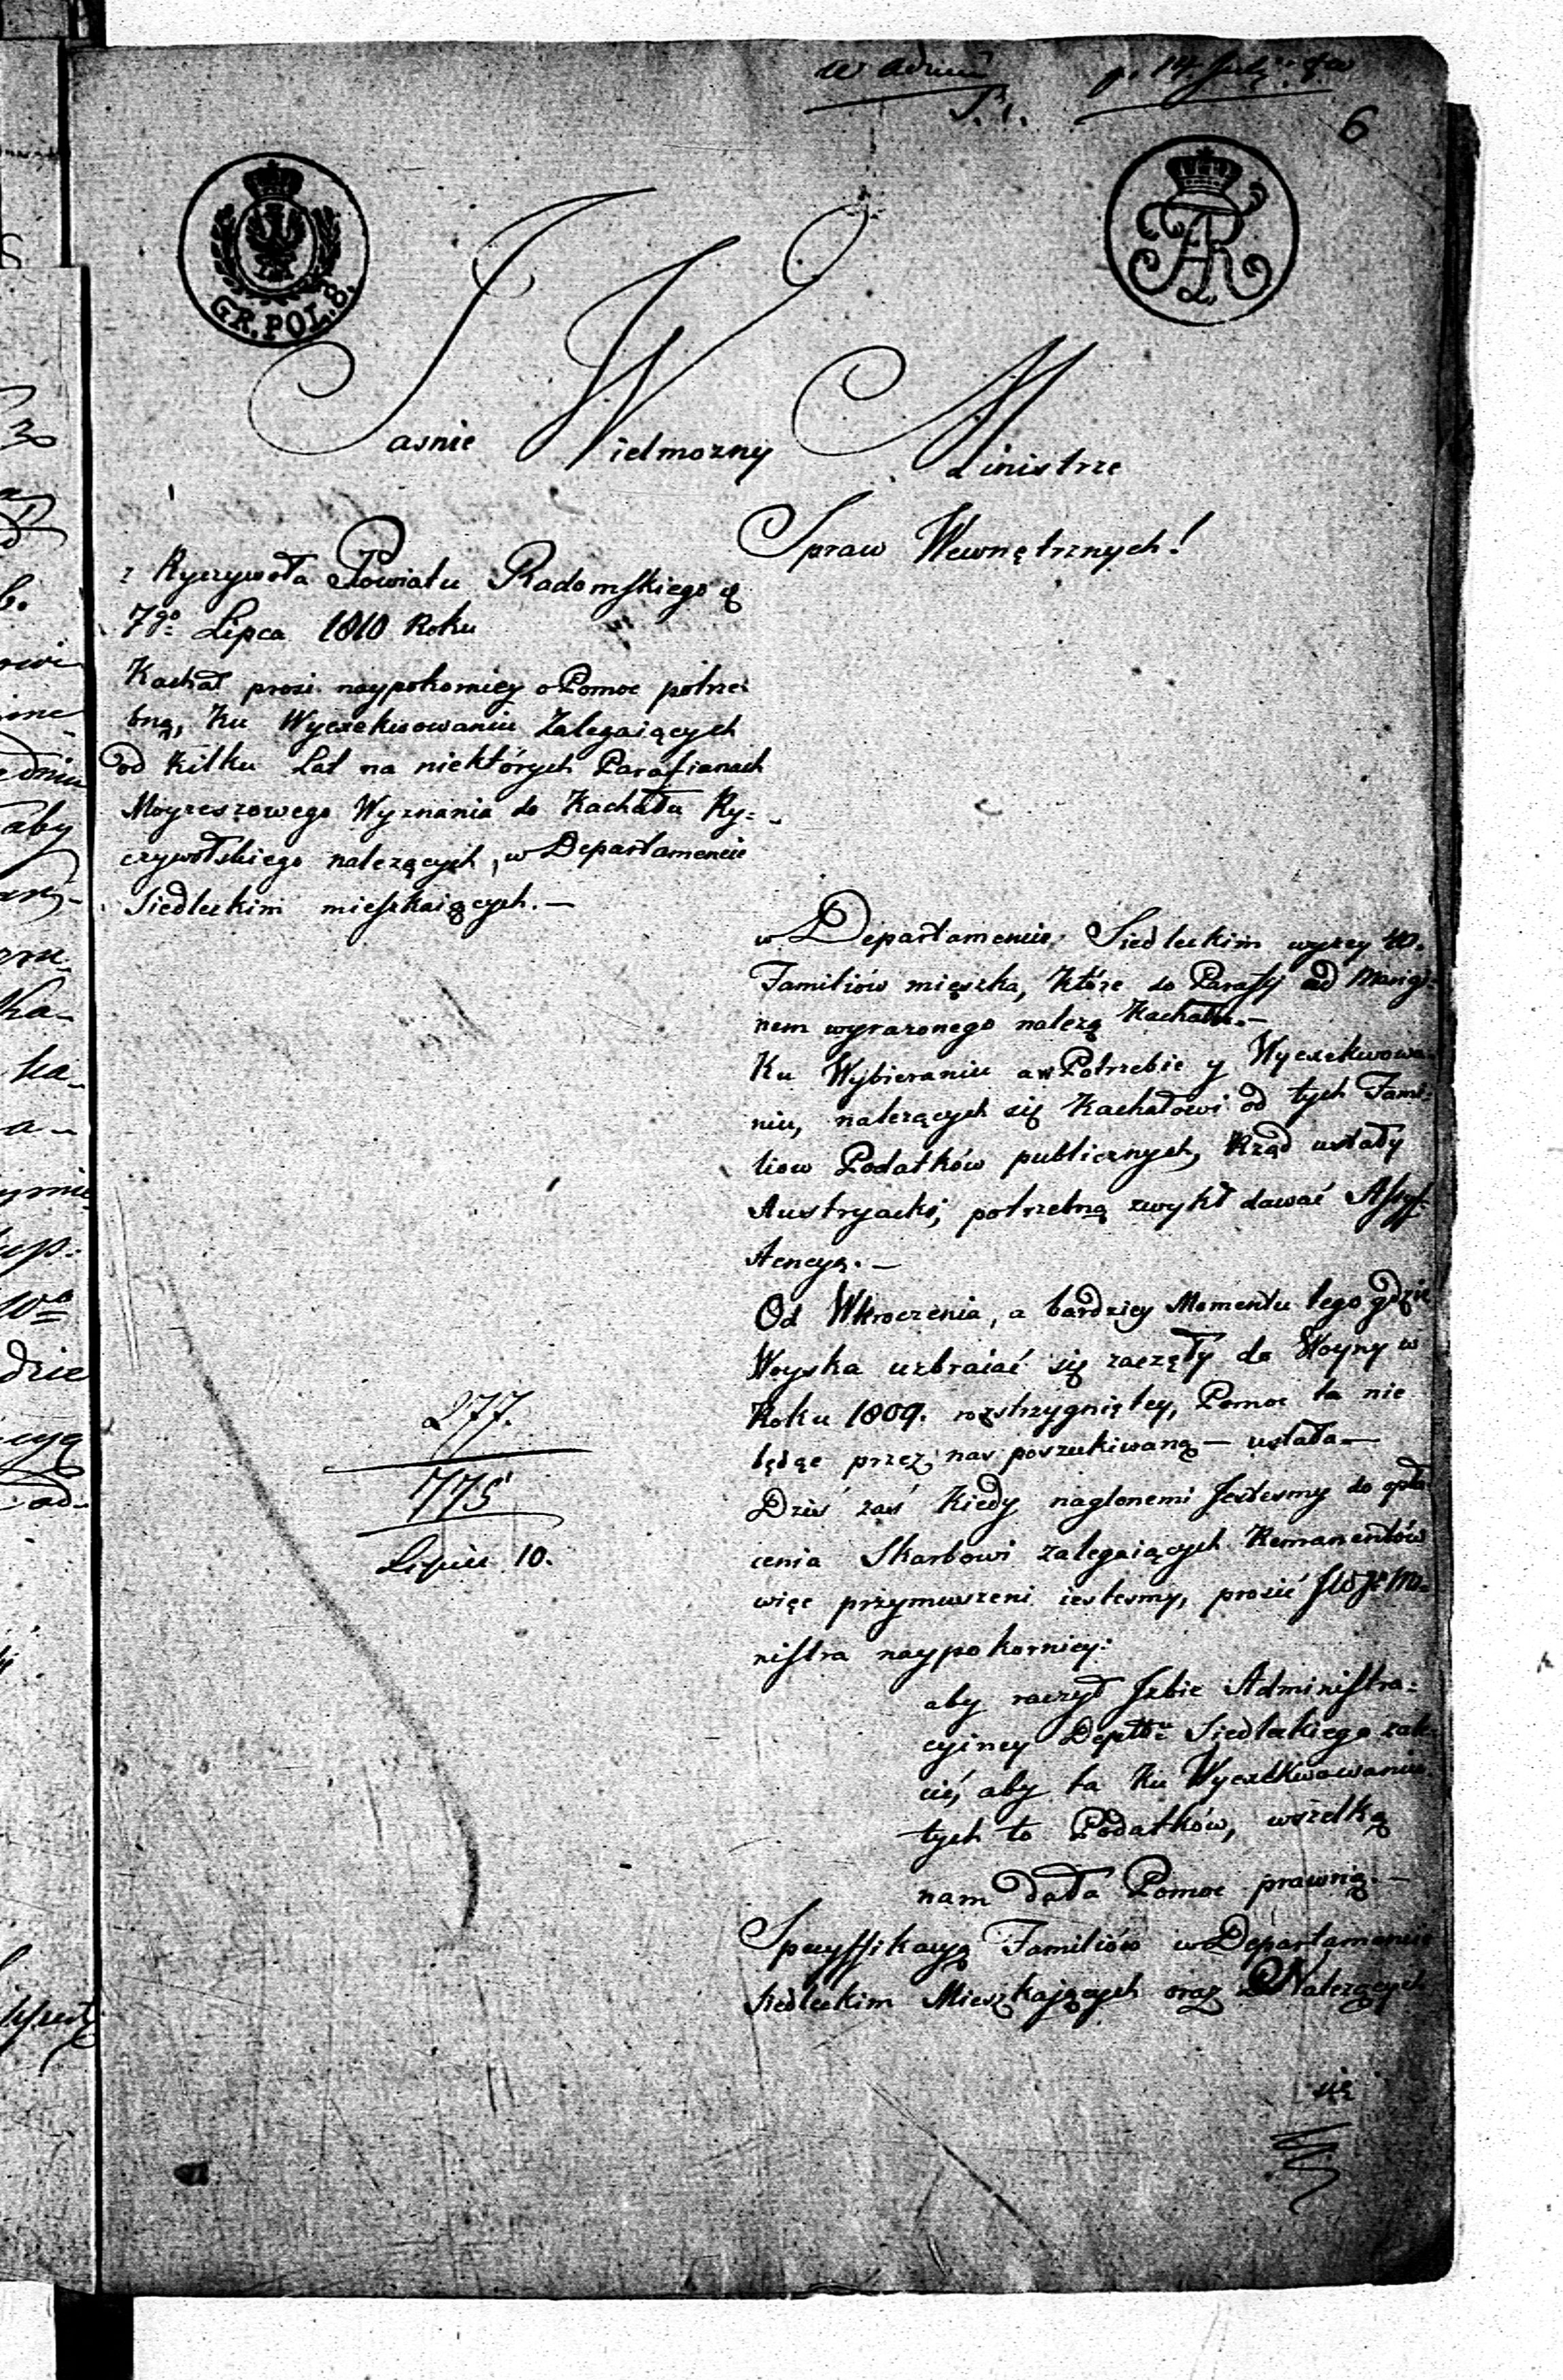 6
GR. POL. 8.
Jasnie Wielmozny Ministrze
Spraw Wewnętrznych!
z Ryczywoła Powiatu Radomskiego d
7go Lipca 1810 Roku
Kachał prosi naypokorniey o Pomoc potrze
bną, Ku Wyexekwowaniu Zalegaiących
od Kilku Lat na niektórych Parafianach
Moyzeszowego Wyznania do Kachału Ry=
czywolskiego nalezących, w Departamencie
Siedleckim mieszkaiących. —
w Departamencie Siedleckim wyzey 40.
Familiów mięszka, które do Parafij ad Margi=
nem wyrazonego nalezą Kachału. —
Ku Wybieraniu a w Potrzebie y Wyexekwowa=
niu, nalezących się Kachałowi od tych Fami=
liow Podatków publicznych, Rząd ustały
Austryacki, potrzebną zwykł dawać Assys=
stencyą. —
Od Wkroczenia, a bardziey Momentu tego gdzie
Woyska uzbraiać się zaczęły do Woyny w
Roku 1809. rozstrzygniętey, Pomoc ta nie
będąc przez nas poszukiwaną — ustała —
Dziś zaś Kiedy naglonemi Jestesmy do opła
cenia Skarbowi zalegaiących Remanentów
więc przymuszeni iestesmy, prosić JW Mi=
nistra naypokorniey:
aby raczył Izbie Administra=
cyiney Depttu Siedleckiego zale
cić, aby ta Ku Wyexekwowaniu
tych to Podatków, wszelką
nam dała Pomoc prawną. —
Specyffikacyą Familiów w Departamencie
Siedleckim Mieszkających oraz Nalezących
się
277.
775
Lipca 10.